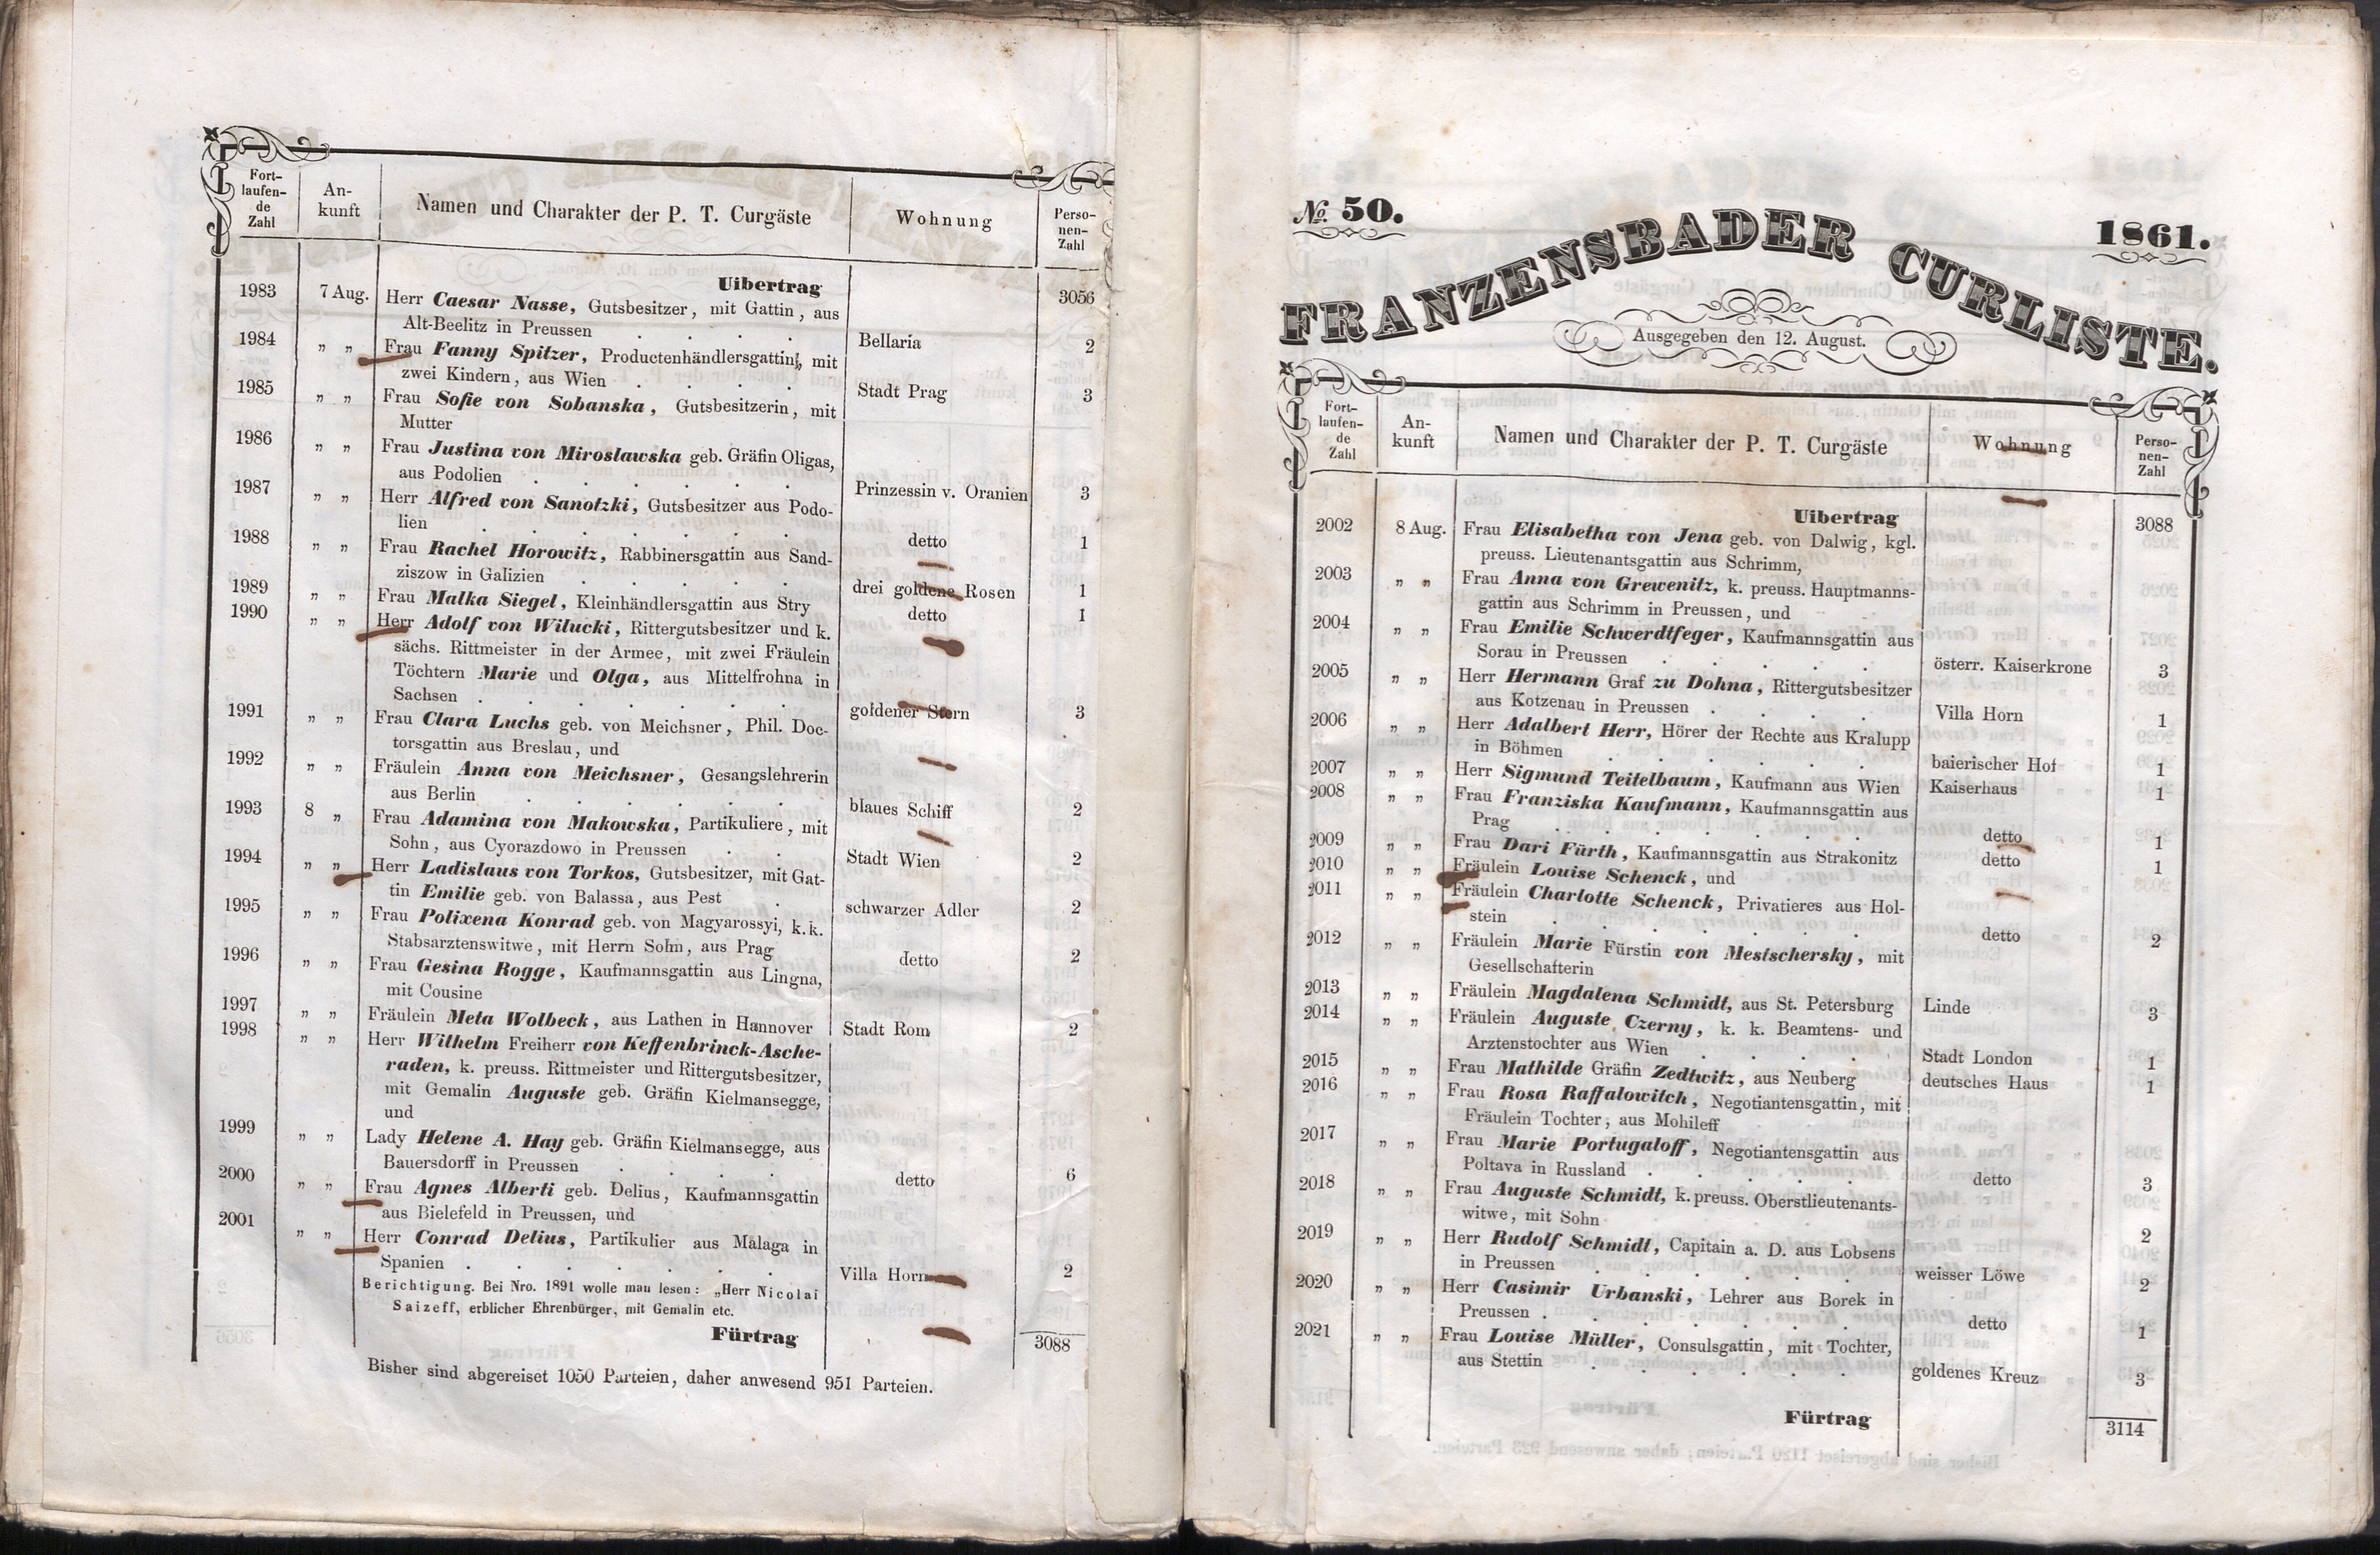 Fort-
laufen-
de
Zahl
An-
kunft
Namen und Charakter der P. T. Curgäste
Wohnung
Perso-
nen-
Zahl
Uibertrag 3056
1983 7 Aug. Herr Caesar Nasse, Gutsbesitzer, mit Gattin, aus
Alt-Beelitz in Preussen . . . . Bellaria 2
1984 „ „ Frau Fanny Spitzer, Productenhändlersgattin, mit
zwei Kindern, aus Wien . . . . Stadt Prag 3
1985 „ „ Frau Sofie von Sobanska, Gutsbesitzerin, mit
Mutter
1986 „ „ Frau Justina von Miroslawska geb. Gräfin Oligas,
aus Podolien . . . . . . Prinzessin v. Oranien 3
1987 „ „ Herr Alfred von Sanotzki, Gutsbesitzer aus Podo-
lien . . . . . . . detto 1
1988 „ „ Frau Rachel Horowitz, Rabbinersgattin aus Sand-
ziszow in Galizien . . . . . drei goldene Rosen 1
1989 „ „ Frau Malka Siegel, Kleinhändlersgattin aus Stry detto 1
1990 „ „ Herr Adolf von Wilucki, Rittergutsbesitzer und k.
sächs. Rittmeister in der Armee, mit zwei Fräulein
Töchtern Marie und Olga, aus Mittelfrohna in
Sachsen . . . . . . . goldener Stern 3
1991 „ „ Frau Clara Luchs geb. von Meichsner, Phil. Doc-
torsgattin aus Breslau, und
1992 „ „ Fräulein Anna von Meichsner, Gesangslehrerin
aus Berlin . . . . . . blaues Schiff 2
1993 8 „ Frau Adamina von Makowska, Partikuliere, mit
Sohn, aus Cyorazdowo in Preussen . . Stadt Wien 2
1994 „ „ Herr Ladislaus von Torkos, Gutsbesitzer, mit Gat-
tin Emilie geb. von Balassa, aus Pest . schwarzer Adler 2
1995 „ „ Frau Polixena Konrad geb. von Magyarossyi, k. k.
Stabsarztenswitwe, mit Herrn Sohn, aus Prag detto 2
1996 „ „ Frau Gesina Rogge, Kaufmannsgattin aus Lingna,
mit Cousine
1997 „ „ Fräulein Meta Wolbeck, aus Lathen in Hannover Stadt Rom 2
1998 „ „ Herr Wilhelm Freiherr von Keffenbrinck-Asche-
raden, k. preuss. Rittmeister und Rittergutsbesitzer,
mit Gemalin Auguste geb. Gräfin Kielmansegge,
und
1999 „ „ Lady Helene A. Hay geb. Gräfin Kielmansegge, aus
Bauersdorff in Preussen . . . . detto 6
2000 „ „ Frau Agnes Alberti geb. Delius, Kaufmannsgattin
aus Bielefeld in Preussen, und
2001 „ „ Herr Conrad Delius, Partikulier aus Malaga in
Spanien . . . . . . . Villa Horn 2
Berichtigung. Bei Nro. 1891 wolle man lesen: „Herr Nicolai
Saizeff, erblicher Ehrenbürger, mit Gemalin etc.
Fürtrag 3088
Bisher sind abgereiset 1050 Parteien, daher anwesend 951 Parteien.
No. 50. 1861.
FRANZENSBADER CURLISTE.
Ausgegeben den 12. August.
Fort-
laufen-
de
Zahl
An-
kunft
Namen und Charakter der P. T. Curgäste
Wohnung
Perso-
nen-
Zahl
Uibertrag 3088
2002 8 Aug. Frau Elisabetha von Jena geb. von Dalwig, kgl.
preuss. Lieutenantsgattin aus Schrimm,
2003 „ „ Frau Anna von Grewenitz, k. preuss. Hauptmanns-
gattin aus Schrimm in Preussen, und
2004 „ „ Frau Emilie Schwerdtfeger, Kaufmannsgattin aus
Sorau in Preussen . . . . . österr. Kaiserkrone 3
2005 „ „ Herr Hermann Graf zu Dohna, Rittergutsbesitzer
aus Kotzenau in Preussen . . . . Villa Horn 1
2006 „ „ Herr Adalbert Herr, Hörer der Rechte aus Kralupp
in Böhmen . . . . . . baierischer Hof 1
2007 „ „ Herr Sigmund Teitelbaum, Kaufmann aus Wien Kaiserhaus 1
2008 „ „ Frau Franziska Kaufmann, Kaufmannsgattin aus
Prag . . . . . . . detto 1
2009 „ „ Frau Dari Fürth, Kaufmannsgattin aus Strakonitz detto 1
2010 „ „ Fräulein Louise Schenck, und
2011 „ „ Fräulein Charlotte Schenck, Privatieres aus Hol-
stein . . . . . . . detto 2
2012 „ „ Fräulein Marie Fürstin von Mestschersky, mit
Gesellschafterin
2013 „ „ Fräulein Magdalena Schmidt, aus St. Petersburg Linde 3
2014 „ „ Fräulein Auguste Czerny, k. k. Beamtens- und
Arztenstochter aus Wien . . . . Stadt London 1
2015 „ „ Frau Mathilde Gräfin Zedtwitz, aus Neuberg deutsches Haus 1
2016 „ „ Frau Rosa Raffalowitch, Negotiantensgattin, mit
Fräulein Tochter, aus Mohileff
2017 „ „ Frau Marie Portugaloff, Negotiantensgattin aus
Poltava in Russland . . . . . detto 3
2018 „ „ Frau Auguste Schmidt, k. preuss. Oberstlieutenants-
witwe, mit Sohn 2
2019 „ „ Herr Rudolf Schmidt, Capitain a. D. aus Lobsens
in Preussen . . . . . . weisser Löwe 2
2020 „ „ Herr Casimir Urbanski, Lehrer aus Borek in
Preussen . . . . . . . detto 1
2021 „ „ Frau Louise Müller, Consulsgattin, mit Tochter,
aus Stettin . . . . . . goldenes Kreuz 3
Fürtrag 3114